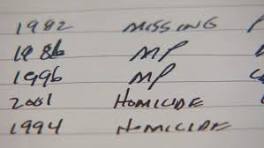 1982 MISSING
1986 MP
1996 MP
2001 HOMICIDE
1994 HOMICIDE